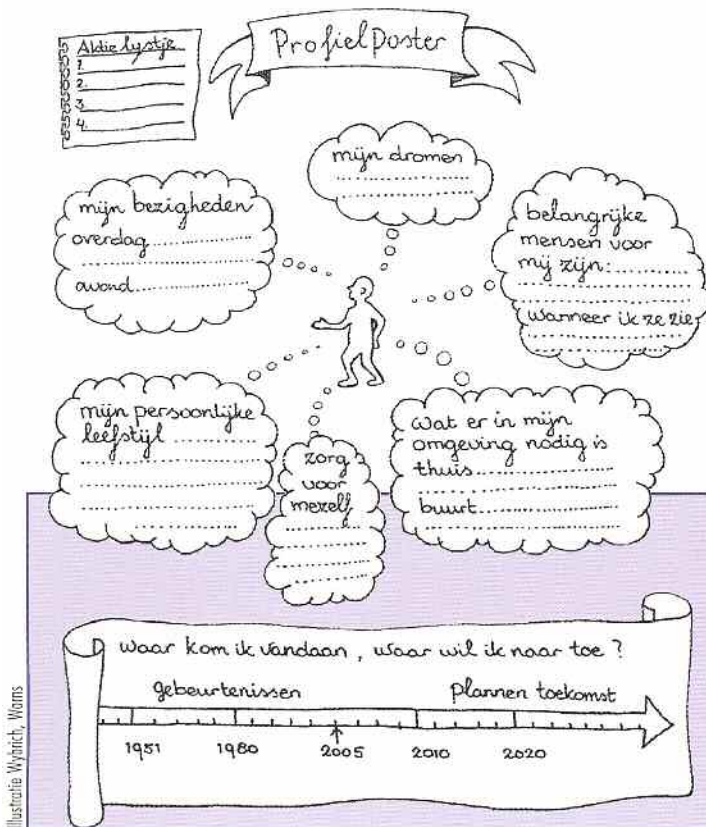 Aldielystje
1.
2.
3.
4.
Profielposter
mijn dromen
mijn bezigheden
overdag
avond
belangrijke
mensen voor
mij zijn:
wanneer ik ze zie
mijn persoonlijke
leefstijl
zorg
voor
mezelf
wat er in mijn
omgeving nodig is
thuis
buurt
waar kom ik vandaan, waar wil ik naar toe?
gebeurtenissen
Plannen toekomst
1951
1980
2005
2010
2020
Illustratie Wybrich, Warns